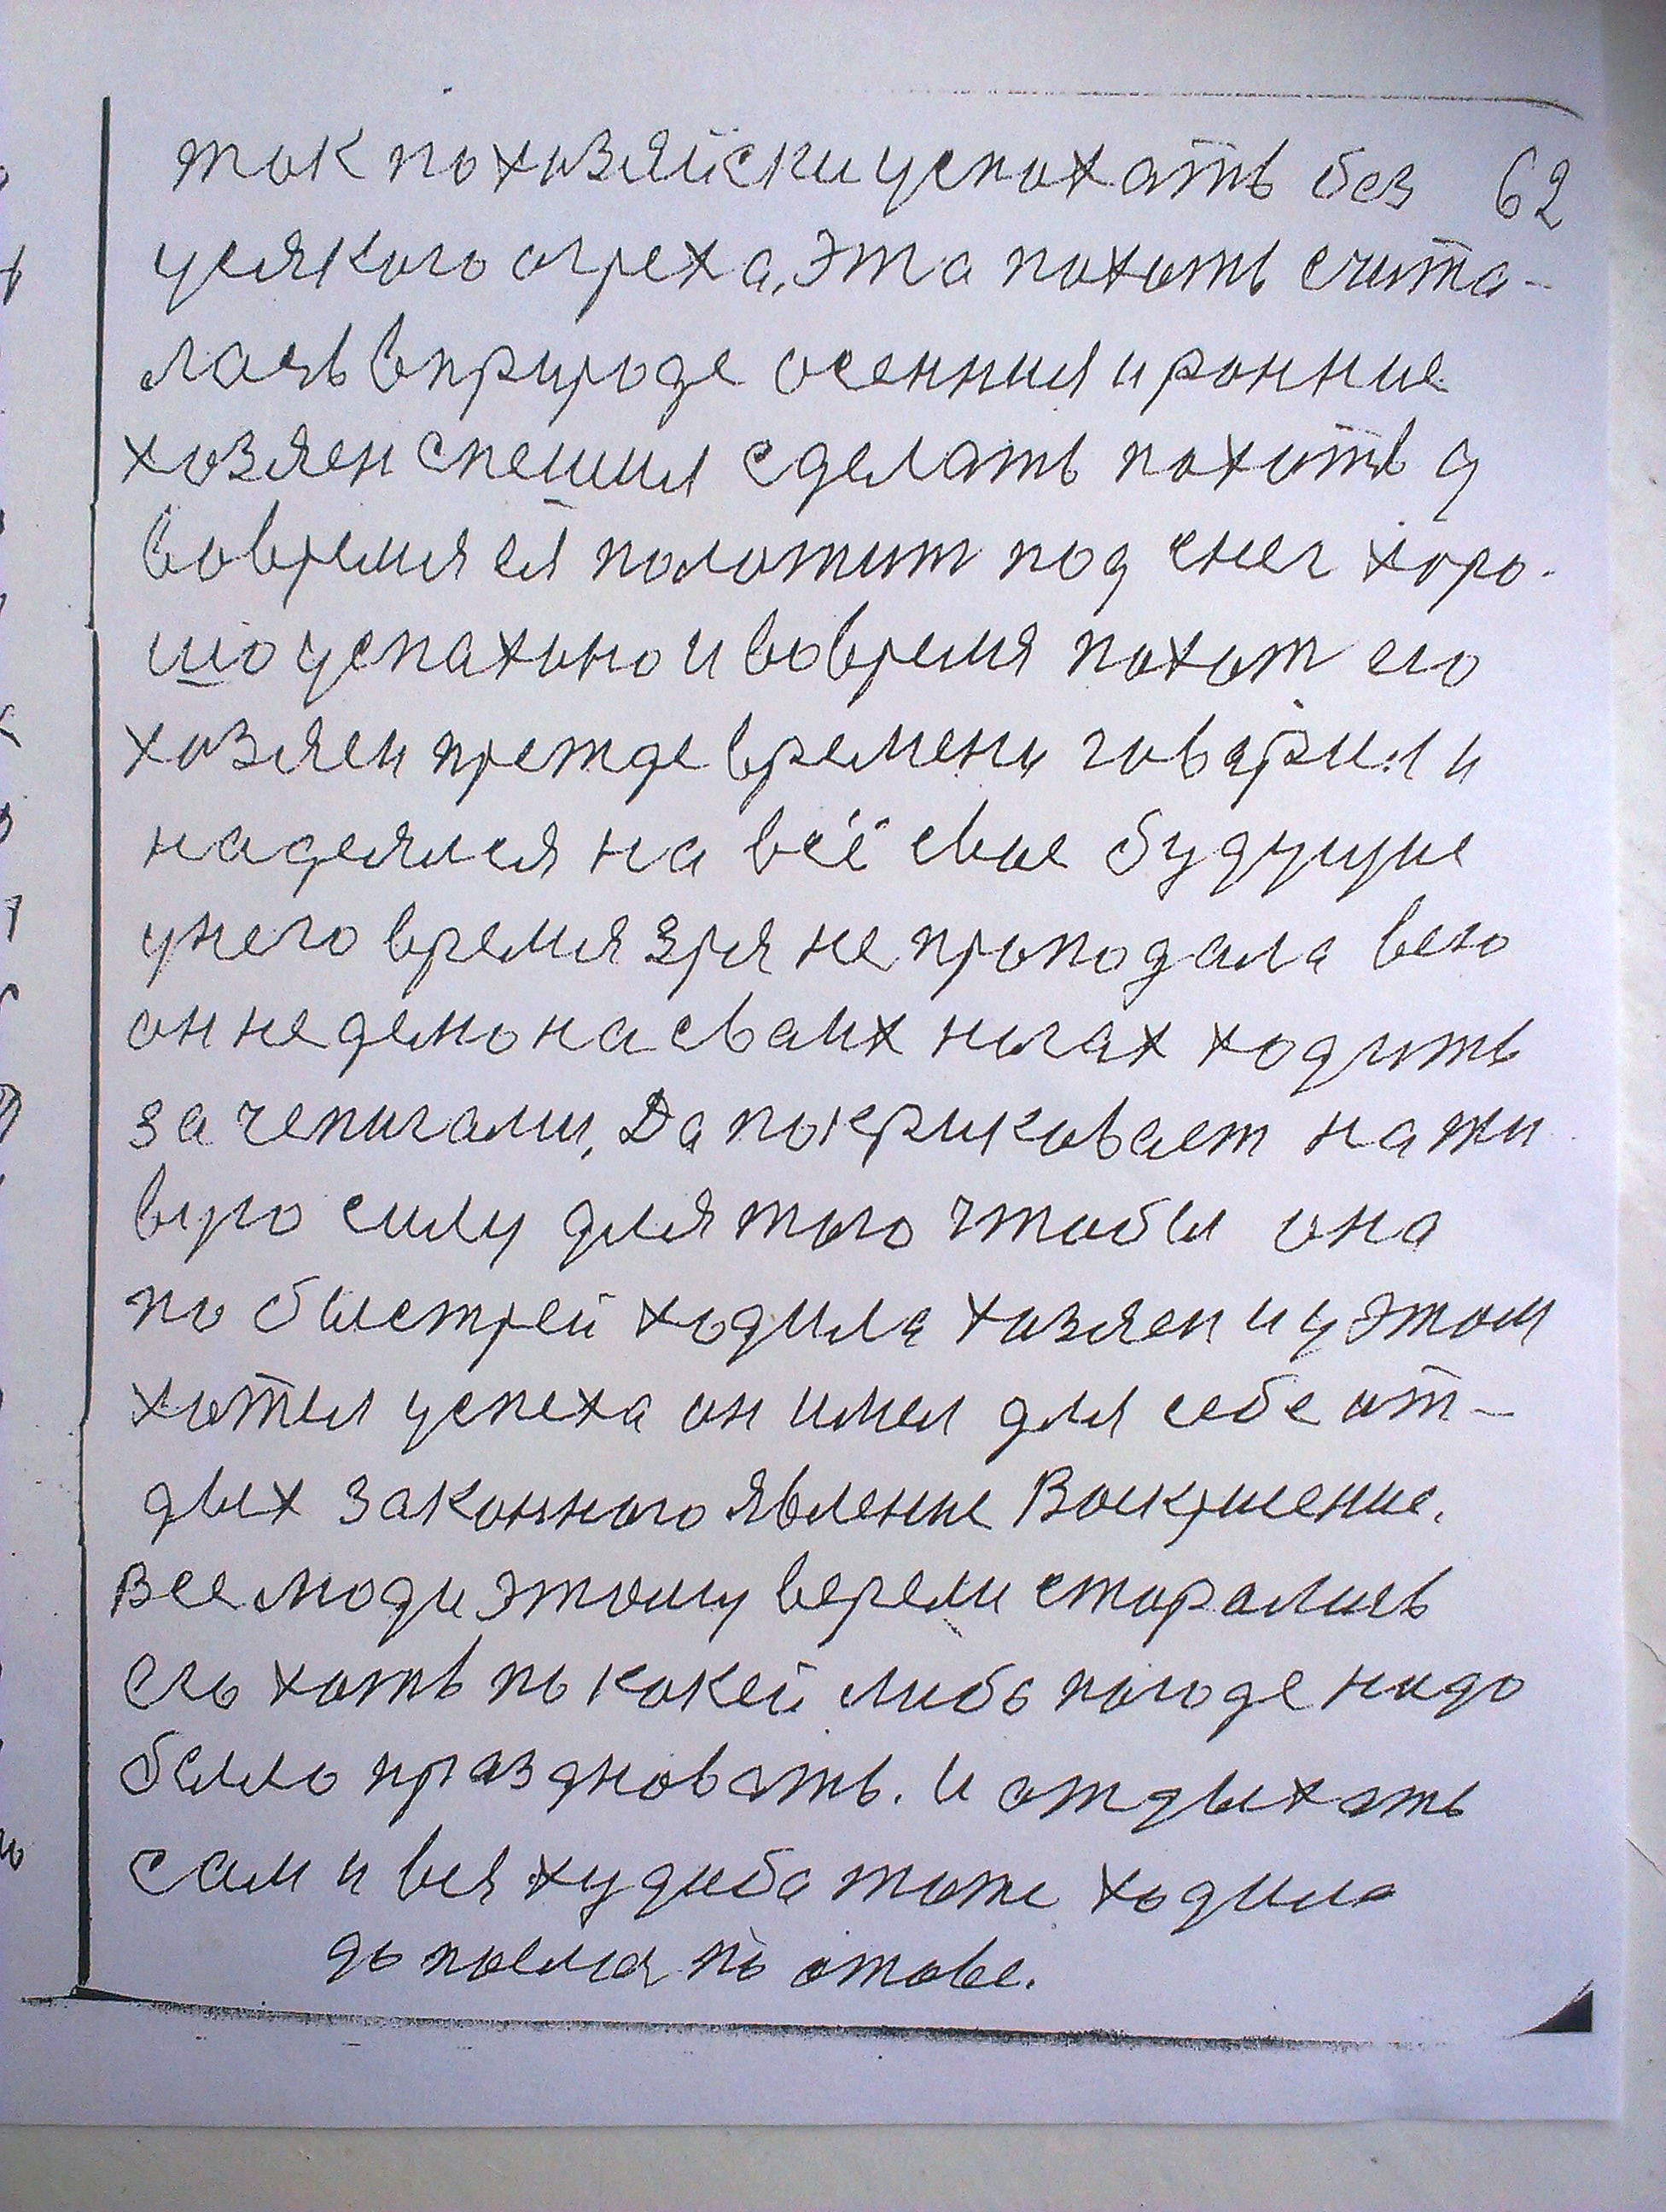 так по хозяйски успохать без 62
усякого огреха, Эта похоть счита-
лась в природе осенния и ранние
хозяен спешил сделать похоть а
вовремя ея положит под снег хоро-
шо успахоно и вовремя похот его
хозяен прежде времени говорил и
надеялся на всё свое будущие
у него время зря не проподала всю
он неделю на сваих ногах ходить
за чепигами, Да покриковает на жи
вую силу для того чтобы она
по быстрей ходила хозяен и у этом
хотел успеха он имел для себе от-
дых законного явление Воскрисение.
Все люди этому верели старались
его хоть по какей либо погоде надо
было праздновать. И отдыхать
сам и вся худоба тоже ходила
до поелся по отаве.